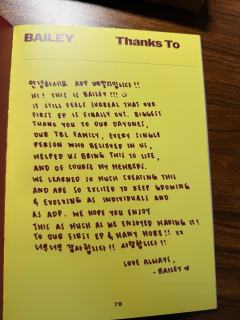 BAILEY Thanks To
안녕하세요 ADP 베일리입니다!!
HI! THIS IS BAILEY!!!
IT STILL FEELS SURREAL THAT OUR
FIRST EP IS FINALLY OUT. BIGGEST
THANK YOU TO OUR DAYONES,
OUR TBL FAMILY, EVERY SINGLE
PERSON WHO BELIEVED IN US,
HELPED US BRING THIS TO LIFE,
AND OF COURSE MY MEMBERS.
WE LEARNED SO MUCH CREATING THIS
AND ARE SO EXCITED TO KEEP GROWING
& EVOLVING AS INDIVIDUALS AND
AS ADP. WE HOPE YOU ENJOY
THIS AS MUCH AS WE ENJOYED MAKING IT!
TO OUR FIRST EP & MANY MORE!! XX
너무너무 감사합니다!! 사랑합니다!!
LOVE ALWAYS,
- BAILEY ♡
78